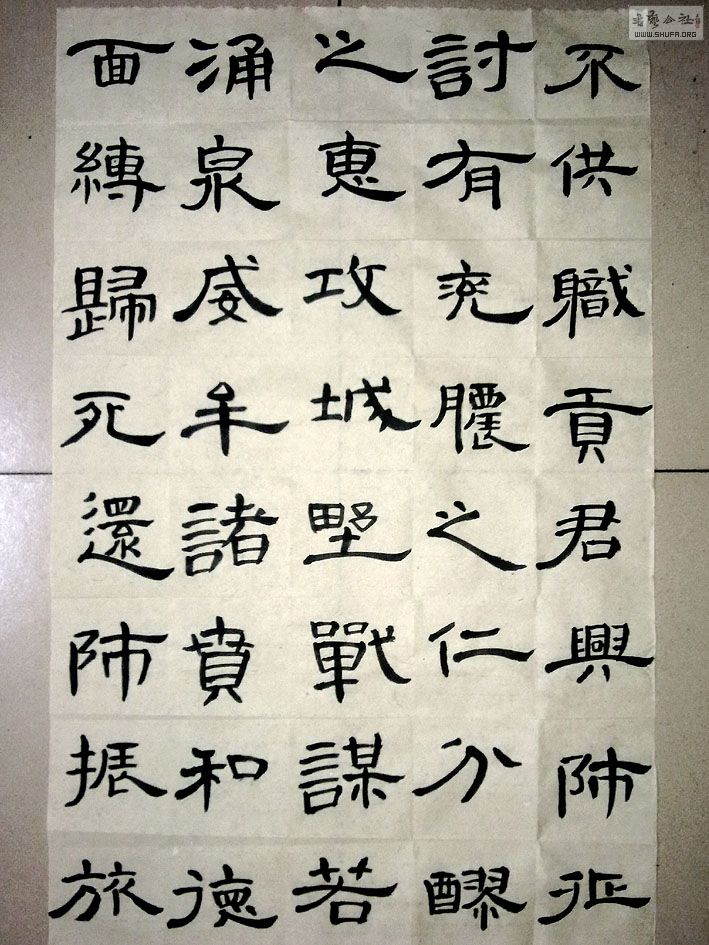 不供職貢君興師征
討有兗膿之仁分醪
之惠攻城野戰謀若
涌泉威牟諸賁和德
面縛歸死還師振旅
书艺公社
WWW.SHUFA.ORG